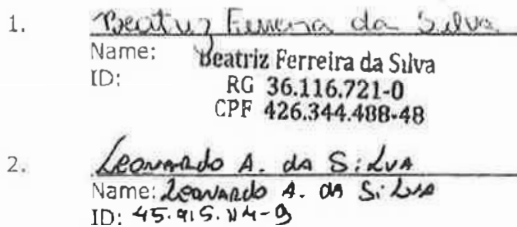 1. Beatriz Ferreira da Silva
Name: Beatriz Ferreira da Silva
ID: RG 36.116.721-0
CPF 426.344.488-48
2. Leonardo A. da Silva
Name: Leonardo A. da Silva
ID: